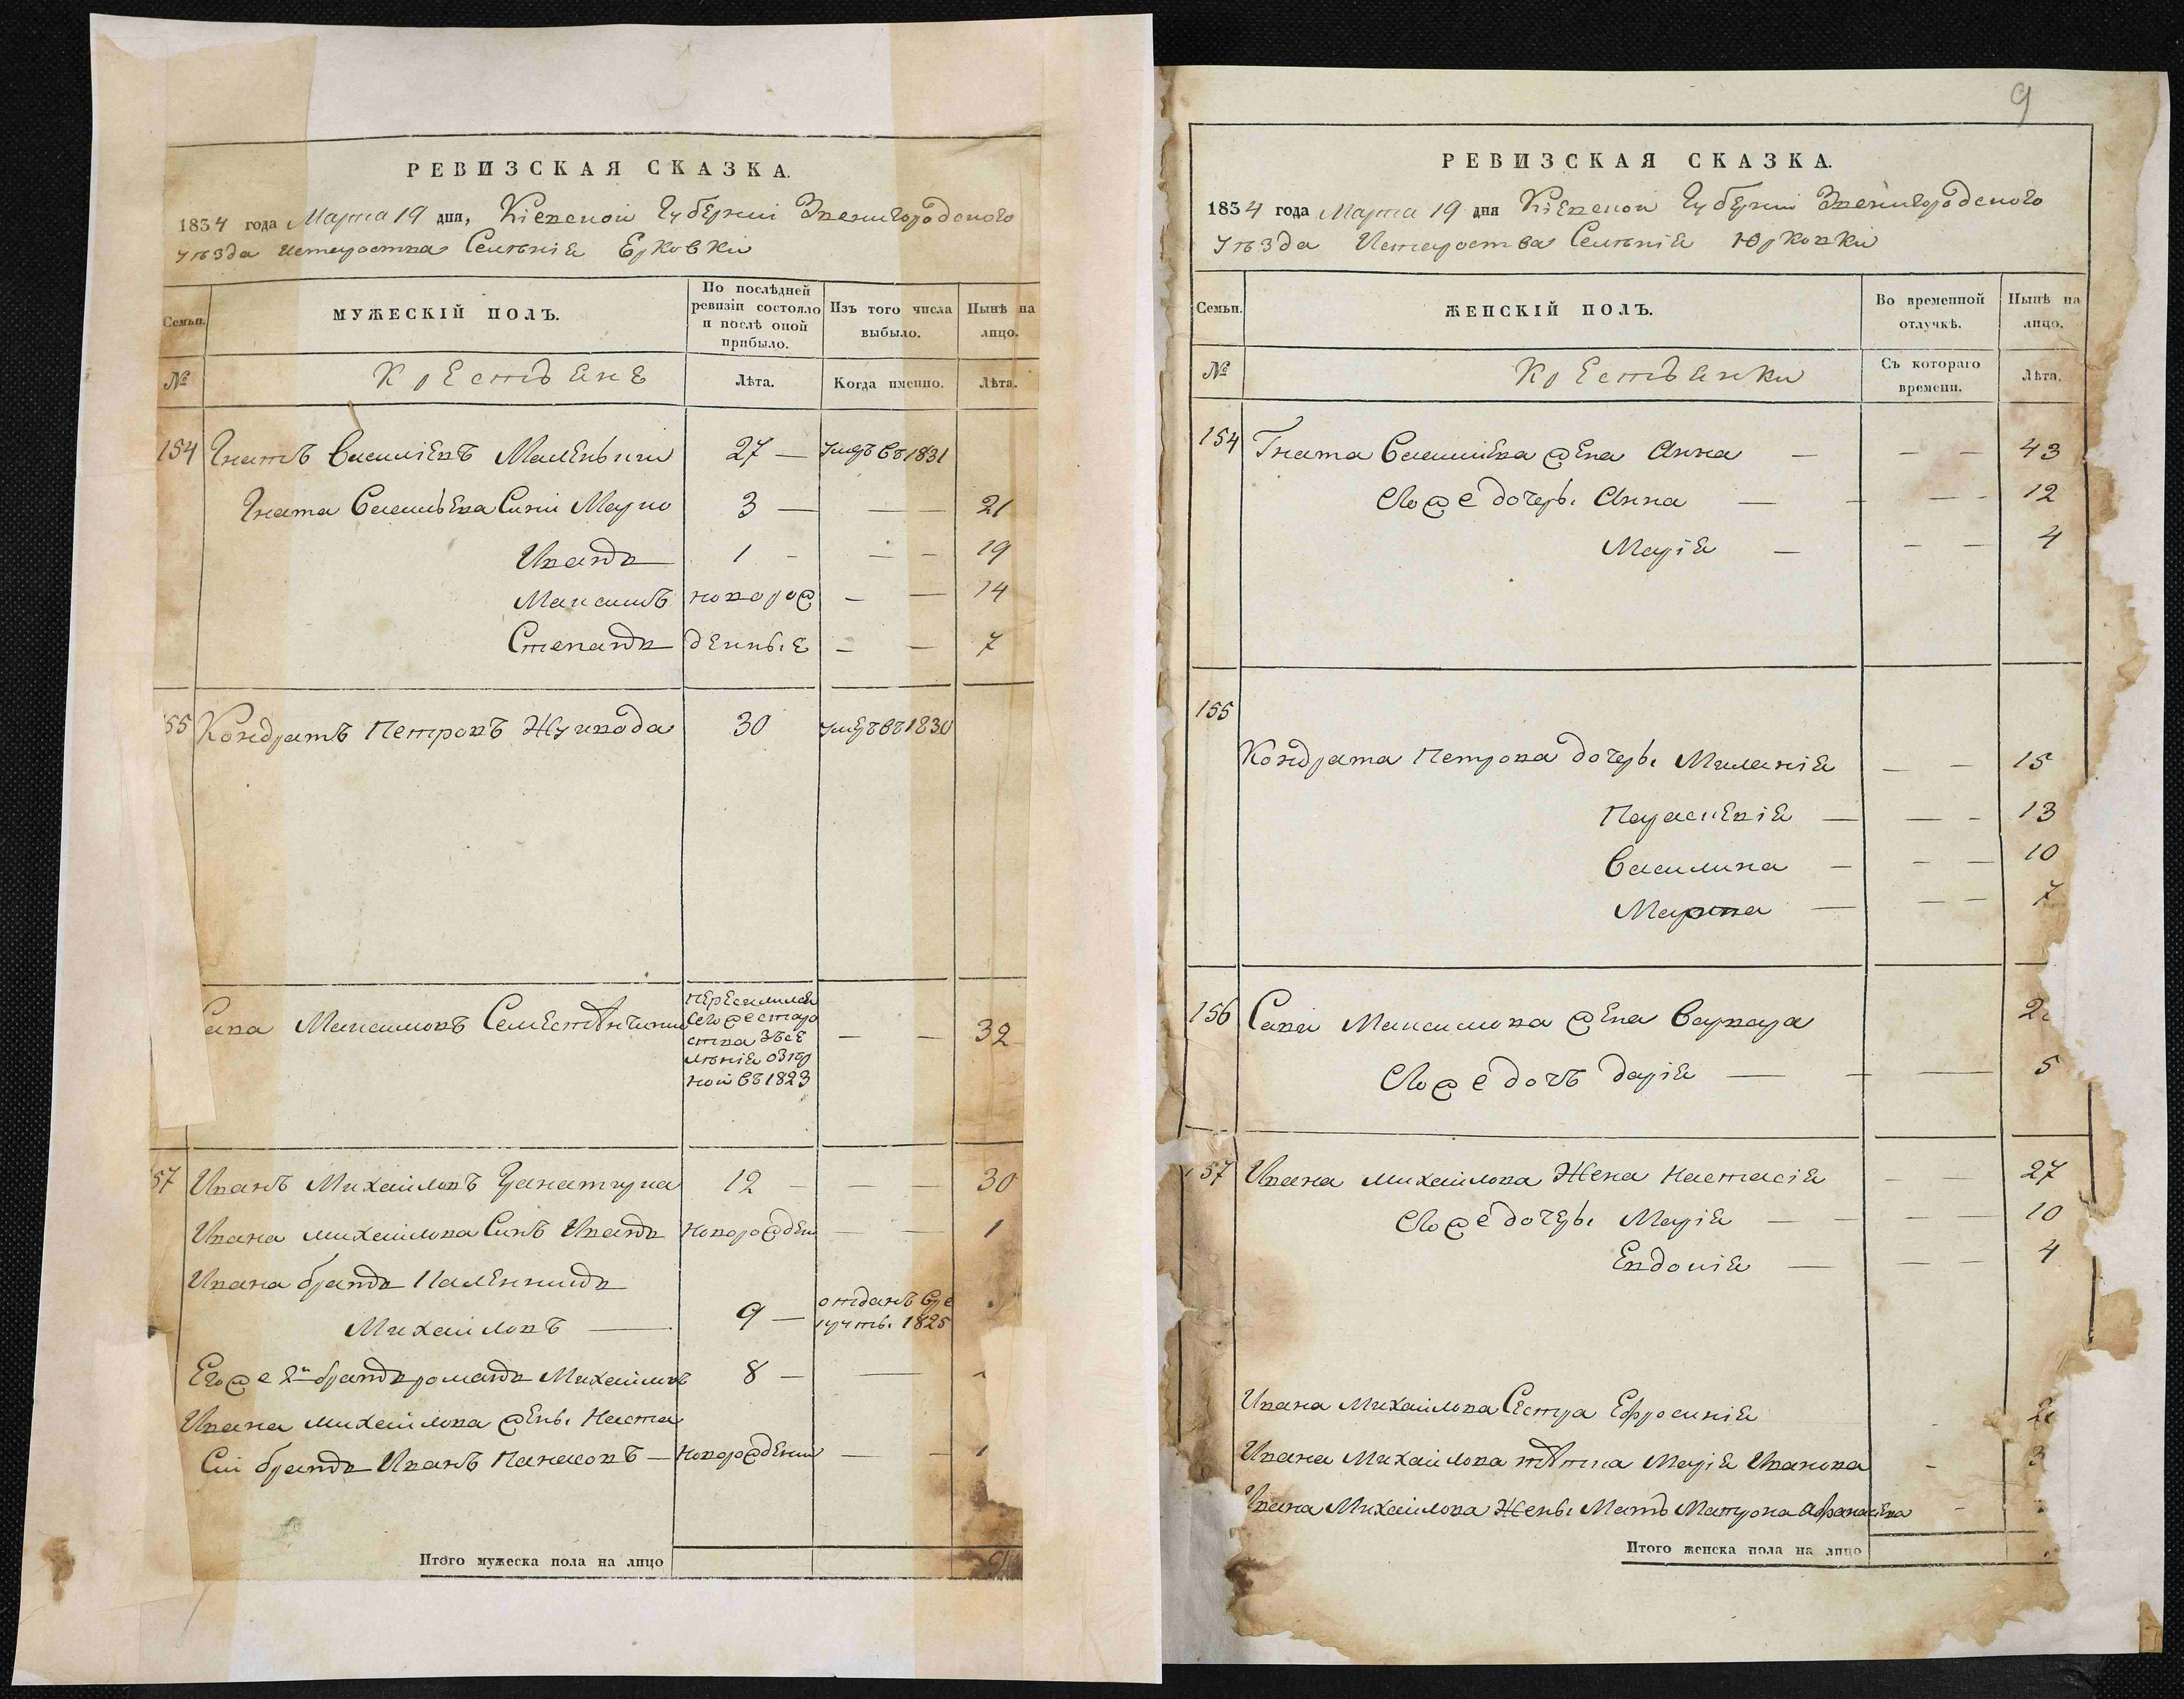 РЕВИЗСКАЯ СКАЗКА.
1834 года Марта 19 дня, Кіевской Губерніи Звенигородского
уѣзда Истароства Селѣнія Ерковки
Семьи.
МУЖЕСКІЙ ПОЛЪ.
По послѣдней ревизіи состояло и послѣ оной прибыло.
Изъ того числа выбыло.
Нынѣ на лицо.
№
Крестьяне
Лѣта.
Когда именно.
Лѣта.
154 Гнатъ Василіевъ Маленькии 27 — умеръ въ 1831
Гната Василіева Сини Марко 3 — — — 21
Иванъ 1 - — — 19
Максимъ новорож — — 14
Степанъ денные — — 7
55 Кондратъ Петровъ 30 умеръ въ 1830
Сава Максимовъ переселился
сегоже старо
ства зъсе
лѣнія Озир
ной въ 1823 — — 32
57 Иванъ Михаиловъ 12 — — — 30
Ивана михаилова Синъ Иванъ новорожден — — 1
Ивана братъ
Михаиловъ — 9 — отданъ въре
круты 1825
Егоже 2й братъ романъ Михаиловъ 8 — —
Ивана михаилова жены Наста
Сіи братъ Иванъ Панасовъ — новорожденій — — 1
Итого мужеска пола на лицо
9
РЕВИЗСКАЯ СКАЗКА.
1834 года Марта 19 дня Кіевской Губерніи Звенигородского
уѣзда Истароства Селѣнія Юрковки
Семьи.
ЖЕНСКІЙ ПОЛЪ.
Во временной отлучкѣ.
Нынѣ на лицо.
№
Крестьянки
Съ котораго времени.
Лѣта.
154 Гната Василіева жена Анна — — — 43
Егоже дочеры Анна — — — - 12
Марія — — — 4
155
Кондрата Петрова дочеры Миланія — — 15
Параскевія — — - 13
Василина — — — 10
Марина — — — 7
156 Сави Максимова жена Варвара
Егоже дочъ дарія — — — 5
157 Ивана михаилова Жена Настасія — — 27
Егоже дочеры Марія — — — — 10
Евдокія — — — 4
Ивана Михаилова Сестра Ефросинія -
Ивана Михаилова тѣтка Марія Иванова -
Ивана Михаилова Жены Мать Матрона Афанасіева -
Итого женска пола на лицо